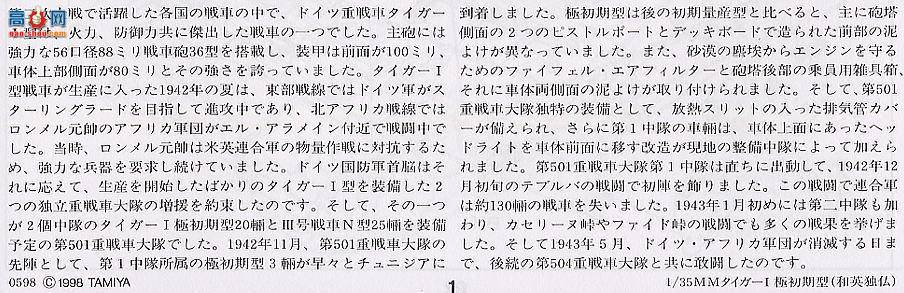 戦で活躍した各国の戦車の中で、ドイツ重戦車タイガー
火力、防御力共に傑出した戦車の一つでした。主砲には
強力な56口径88ミリ戦車砲36型を搭載し、装甲は前面が100ミリ、
車体上部側面が80ミリとその強さを誇っていました。タイガーⅠ
型戦車が生産に入った1942年の夏は、東部戦線ではドイツ軍がス
ターリングラードを目指して進攻中であり、北アフリカ戦線では
ロンメル元帥のアフリカ軍団がエル・アラメイン付近で戦闘中で
した。当時、ロンメル元帥は米英連合軍の物量作戦に対抗するた
め、強力な兵器を要求し続けていました。ドイツ国防軍首脳はそ
れに応えて、生産を開始したばかりのタイガーⅠ型を装備した2
つの独立重戦車大隊の増援を約束したのです。そして、その一つ
が2個中隊のタイガーⅠ極初期型20輛とⅢ号戦車N型25輛を装備
予定の第501重戦車大隊でした。1942年11月、第501重戦車大隊の
先陣として、第1中隊所属の極初期型3輛が早々とチュニジアに
到着しました。極初期型は後の初期量産型と比べると、主に砲塔
側面の2つのピストルポートとデッキボードで造られた前部の泥
よけが異なっていました。また、砂漠の塵埃からエンジンを守る
ためのファイフェル・エアフィルターと砲塔後部の乗員用雑具箱、
それに車体両側面の泥よけが取り付けられました。そして、第501
重戦車大隊独特の装備として、放熱スリットの入った排気管カバ
ーが備えられ、さらに第1中隊の車輛は、車体上面にあったヘッ
ドライトを車体前面に移す改造が現地の整備中隊によって加えら
れました。第501重戦車大隊第1中隊は直ちに出動して、1942年12
月初旬のテブルバの戦闘で初陣を飾りました。この戦闘で連合軍
は約130輛の戦車を失いました。1943年1月初めには第二中隊も加
わり、カセリーヌ峠やファイド峠の戦闘でも多くの戦果を挙げま
した。そして1943年5月、ドイツ・アフリカ軍団が消滅する日ま
で、後続の第504重戦車大隊と共に敢闘したのです。
0598 ©1998 TAMIYA
1
1/35MMタイガーⅠ極初期型(和英独仏)